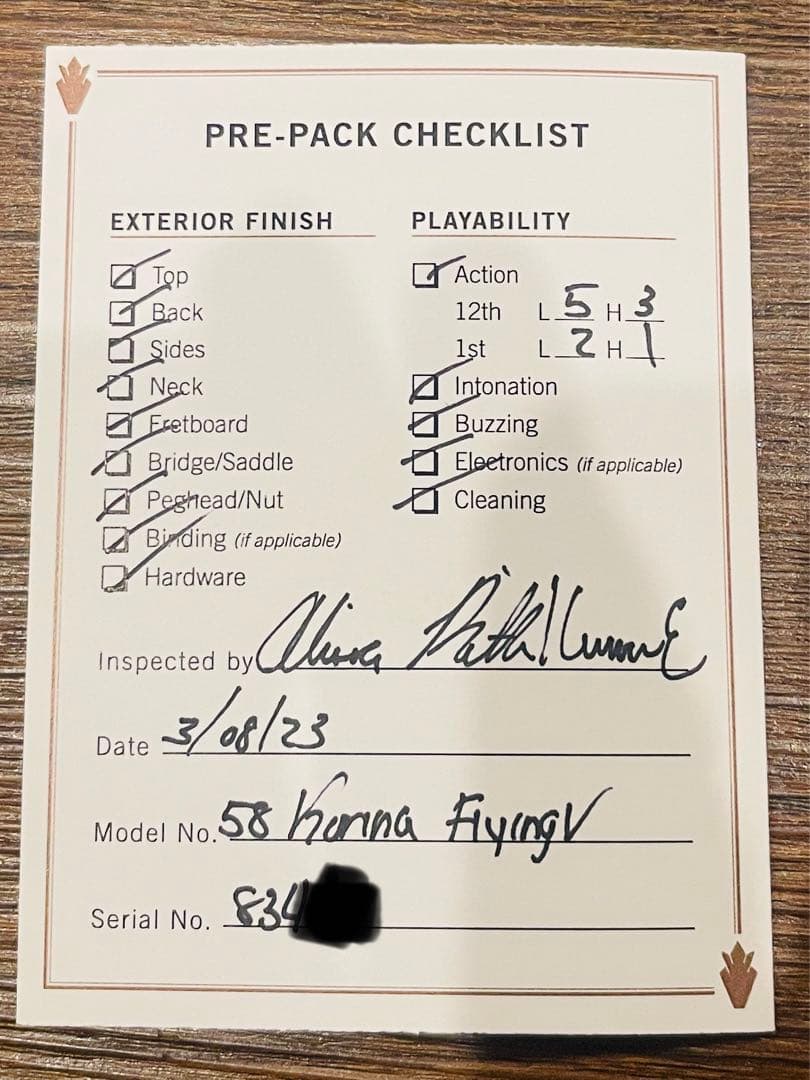 PRE-PACK CHECKLIST
EXTERIOR FINISH
Top
Back
Sides
Neck
Fretboard
Bridge/Saddle
Peghead/Nut
Binding (if applicable)
Hardware
PLAYABILITY
Action
12th L 5 H 3
1st L 2 H 1
Intonation
Buzzing
Electronics (if applicable)
Cleaning
Inspected by
Date 3/08/23
Model No. 58 Korina Flying V
Serial No. 834